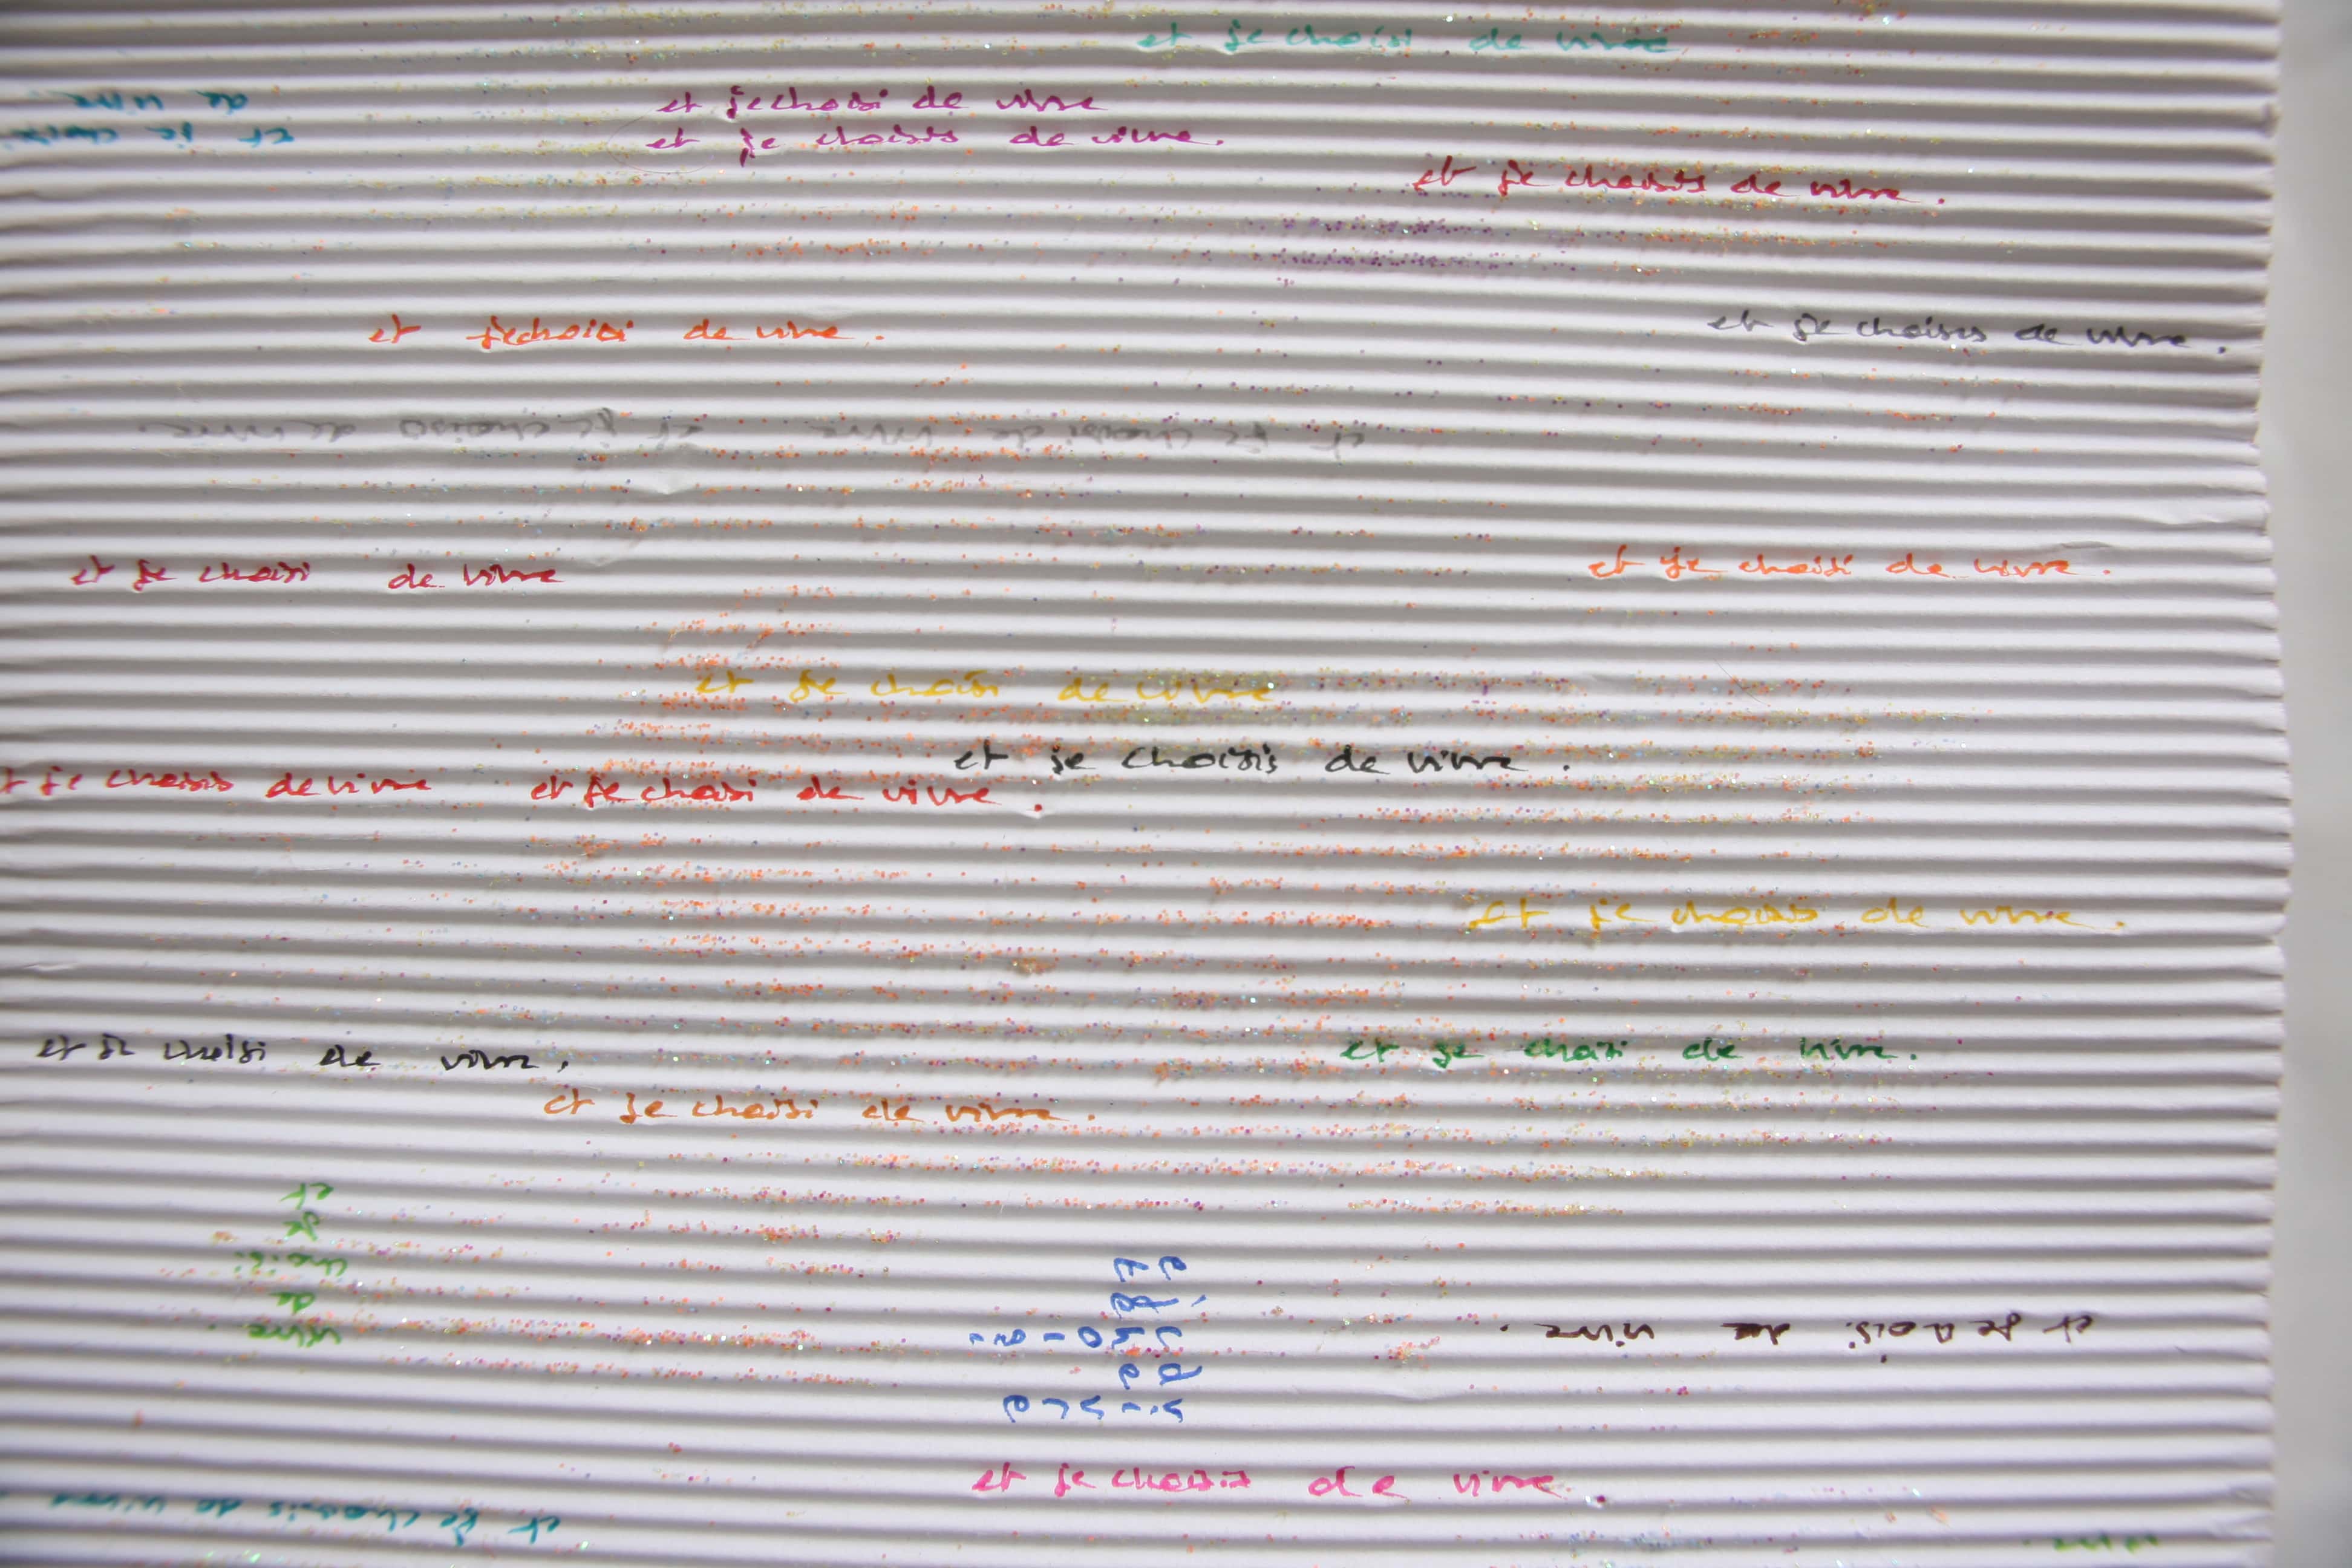 et je choisi de vivre
et jechoisi de vivre
de vivre.
et je choisis de vivre.
et je choisi
et je choisis de vivre.
et je choisis de vivre.
et jechoisi de vivre.
et je choisi de vivre et je choisis de vivre.
et je choisi de vivre.
et je choisi de vivre
et je choisi de vivre
et je choisis de vivre.
et je choisis de vivre et je choisi de vivre.
et je choisis de vivre.
et je choisi de vivre.
et je choisi de vivre.
et je choisi de vivre.
et
je
choisi
de
vivre.
et
je
de
vivre
et je de vivre.
et je choisis de vivre.
et je choisis de vivre
vivre.